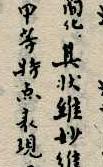 简化，其状维妙维
甲等特点表现